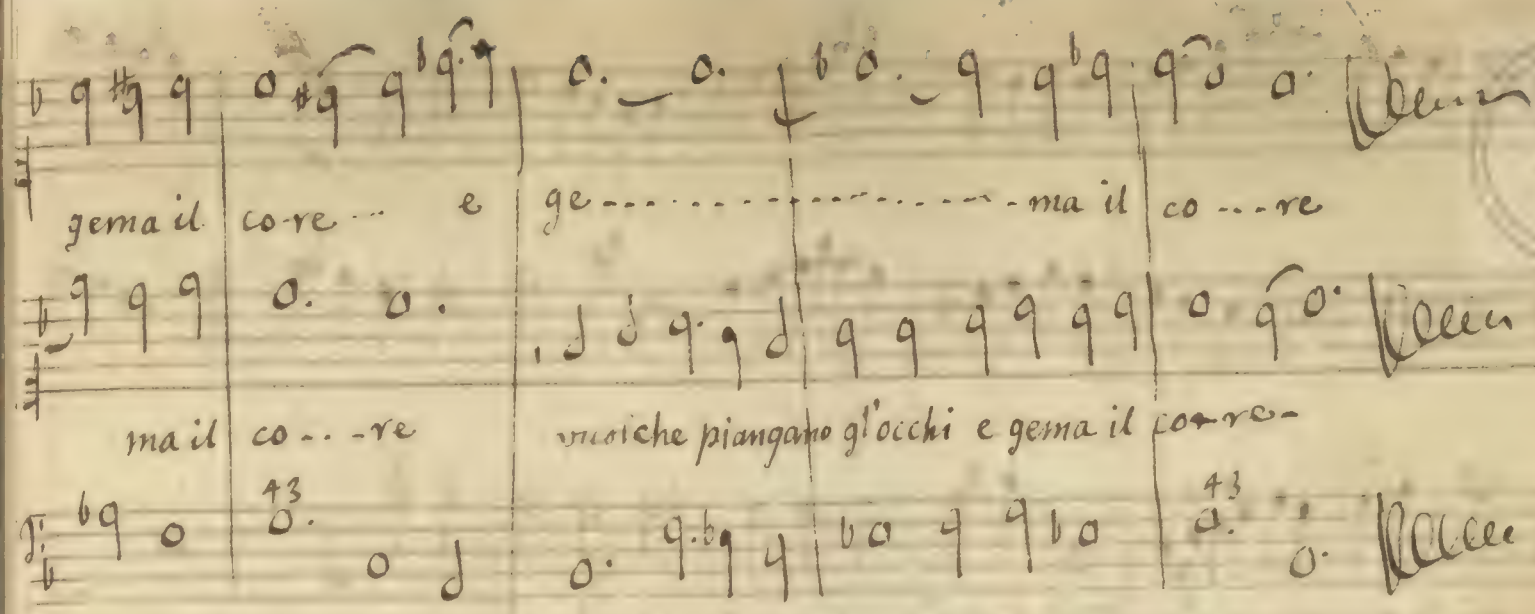 gema il co-re... e ge-------------------ma il co---re
ma il co---re vuoi che piangano gl'occhi e gema il co-re-
43 43